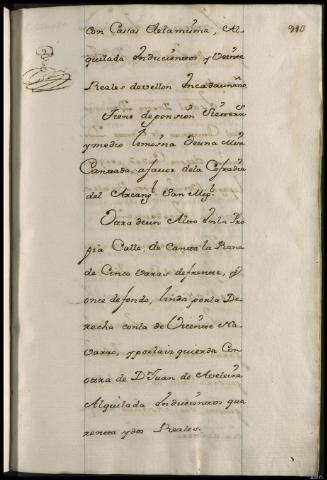 910
con Casas de la misma, Al
quilada En ducientos, y veinte
Reales de vellon En cada un año
Tiene de pension Treinta R.
y medio limosna de una Misa
Cantada, a favor de la Cofradia
del Arcang.l San Mig.l
Otra de un Alto En la Pro
pia Calle, de Canta la Rana
de Cinco varas de frente, y
once de fondo, linda por la De
recha con la de Vicente Na
varro, y por la izquierda Con
otra de D.n Juan de Aveleira
Alquilada En ducientos qua
renta y dos Reales.